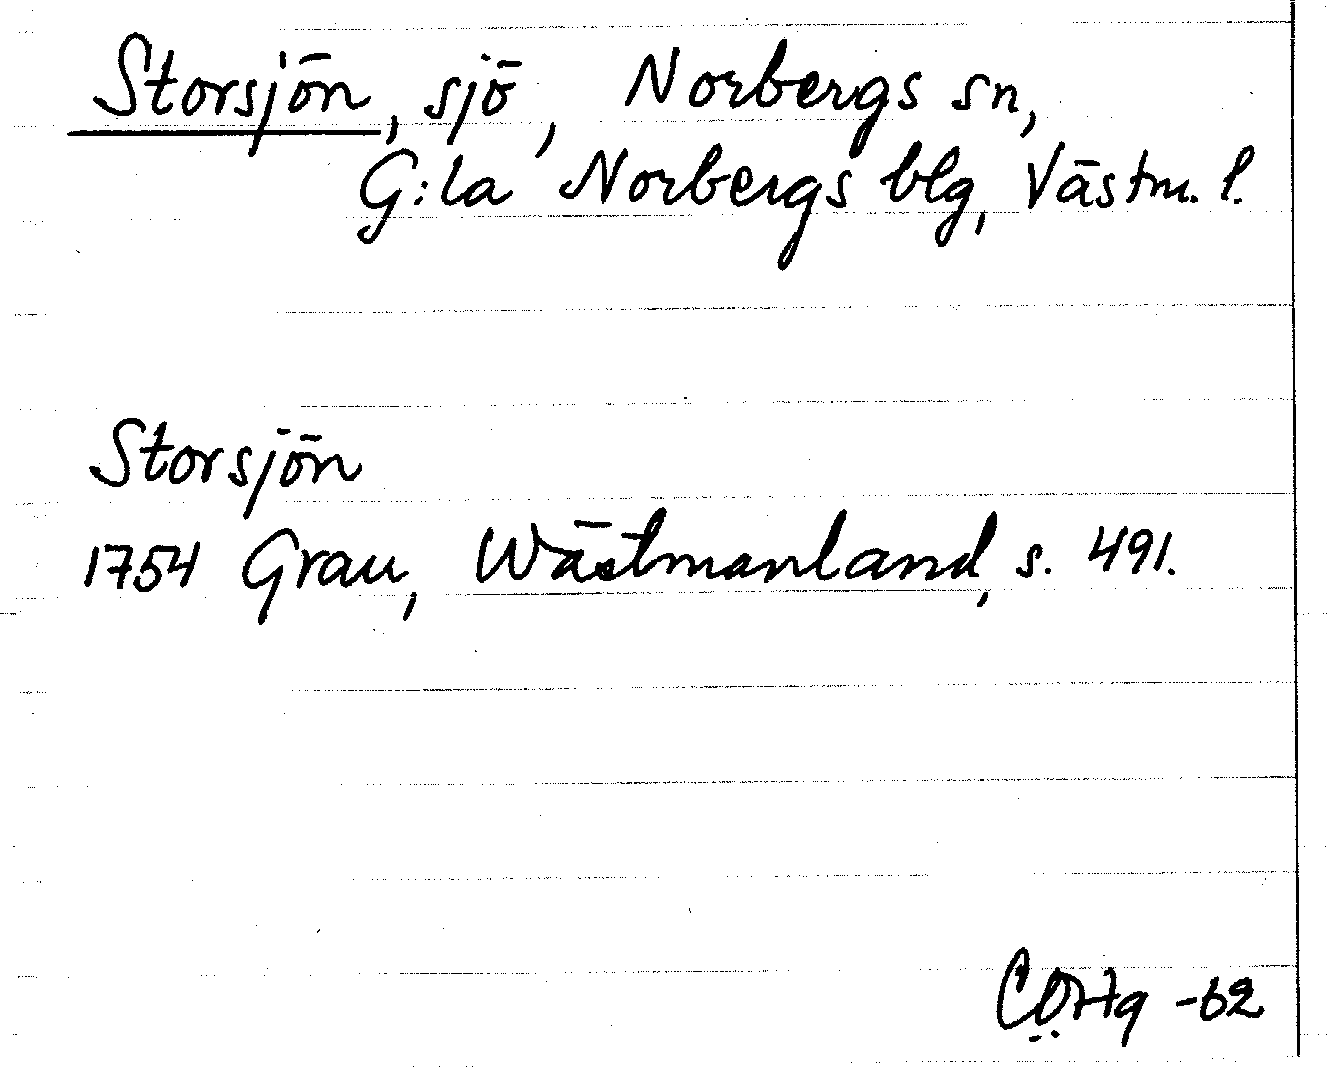 Storsjön, sjö, Norbergs sn,
G:la Norbergs blg, Västm. l.
Storsjön
1754 Grau, Wästmanland, s. 491.
-62